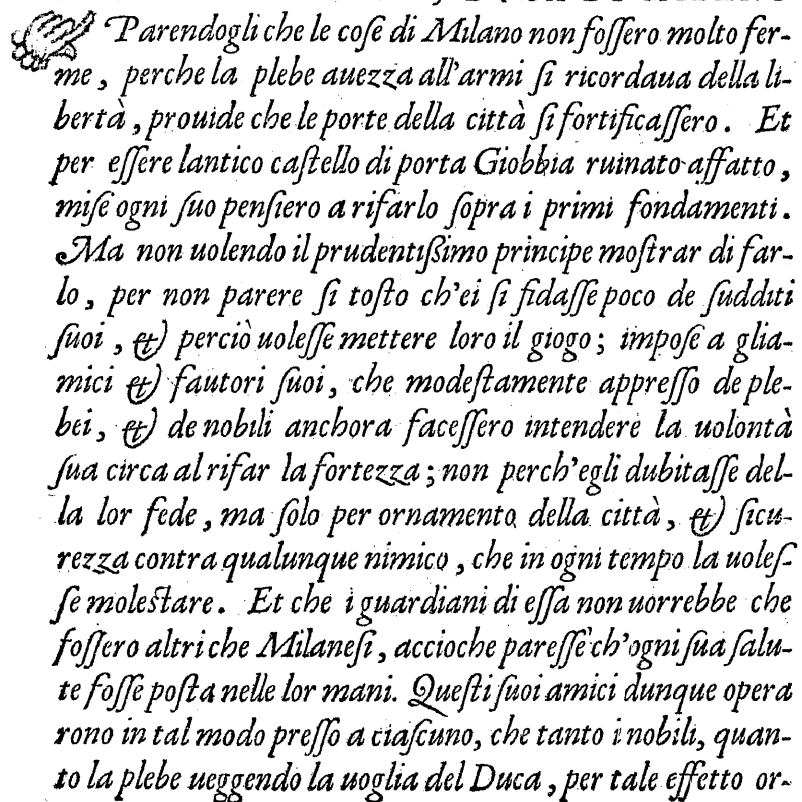 Parendogli che le coſe di Milano non foſſero molto fer-
me, perche la plebe auezza all'armi ſi ricordaua della li-
bertà, prouide che le porte della città ſi fortificaſſero. Et
per eſſere lantico caſtello di porta Giobbia ruinato affatto,
miſe ogni ſuo penſiero a rifarlo ſopra i primi fondamenti.
Ma non uolendo il prudentiſsimo principe moſtrar di far-
lo, per non parere ſi toſto ch'ei ſi fidaſſe poco de ſudditi
ſuoi, & perciò uoleſſe mettere loro il giogo; impoſe a glia-
mici & fautori ſuoi, che modeſtamente appreſſo de ple-
bei, & de nobili anchora faceſſero intendere la uolontà
ſua circa al rifar la fortezza; non perch'egli dubitaſſe del-
la lor fede, ma ſolo per ornamento della città, & ſicu-
rezza contra qualunque nimico, che in ogni tempo la uoleſ-
ſe moleſtare. Et che i guardiani di eſſa non uorrebbe che
foſſero altri che Milaneſi, accioche pareſſe ch'ogni ſua ſalu-
te foſſe poſta nelle lor mani. Queſti ſuoi amici dunque opera
rono in tal modo preſſo a ciaſcuno, che tanto i nobili, quan-
to la plebe ueggendo la uoglia del Duca, per tale effetto or-